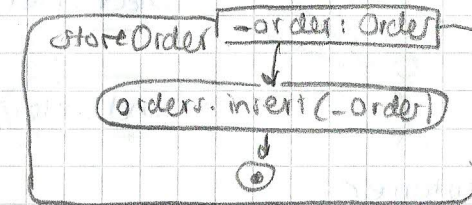 storeOrder -order: Order
orders.insert(-order)